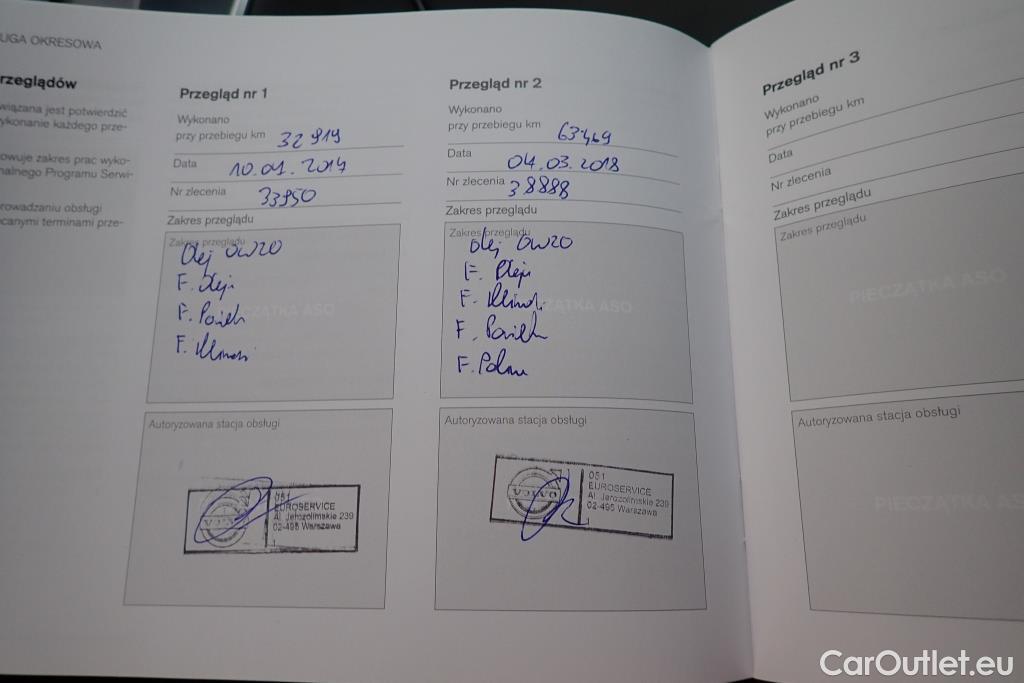 UGA OKRESOWA
rzeglądów
wiązana jest potwierdzić
ykonanie każdego prze-
owuje zakres prac wyko-
nalnego Programu Serwi-
rowadzaniu obsługi
canymi terminami prze-
Przegląd nr 1
Wykonano
przy przebiegu km 32 919
Data 10.01.2017
Nr zlecenia 33950
Zakres przeglądu
Zakres przeglądu
Olej 0W20
F. Oleju
F.
F.
PIECZĄTKA ASO
Autoryzowana stacja obsługi
VOLVO
051
EUROSERVICE
Al. Jerozolimskie 239
02-495 Warszawa
Przegląd nr 2
Wykonano
przy przebiegu km 63469
Data 04.03.2018
Nr zlecenia 38888
Zakres przeglądu
Zakres przeglądu
Olej 0W20
F. Oleju
F.
F.
F.
PIECZĄTKA ASO
Autoryzowana stacja obsługi
VOLVO
051
EUROSERVICE
Al. Jerozolimskie 239
02-495 Warszawa
Przegląd nr 3
Wykonano
przy przebiegu km
Data
Nr zlecenia
Zakres przeglądu
Zakres przeglądu
PIECZĄTKA ASO
Autoryzowana stacja obsługi
PIECZĄTKA ASO
CarOutlet.eu